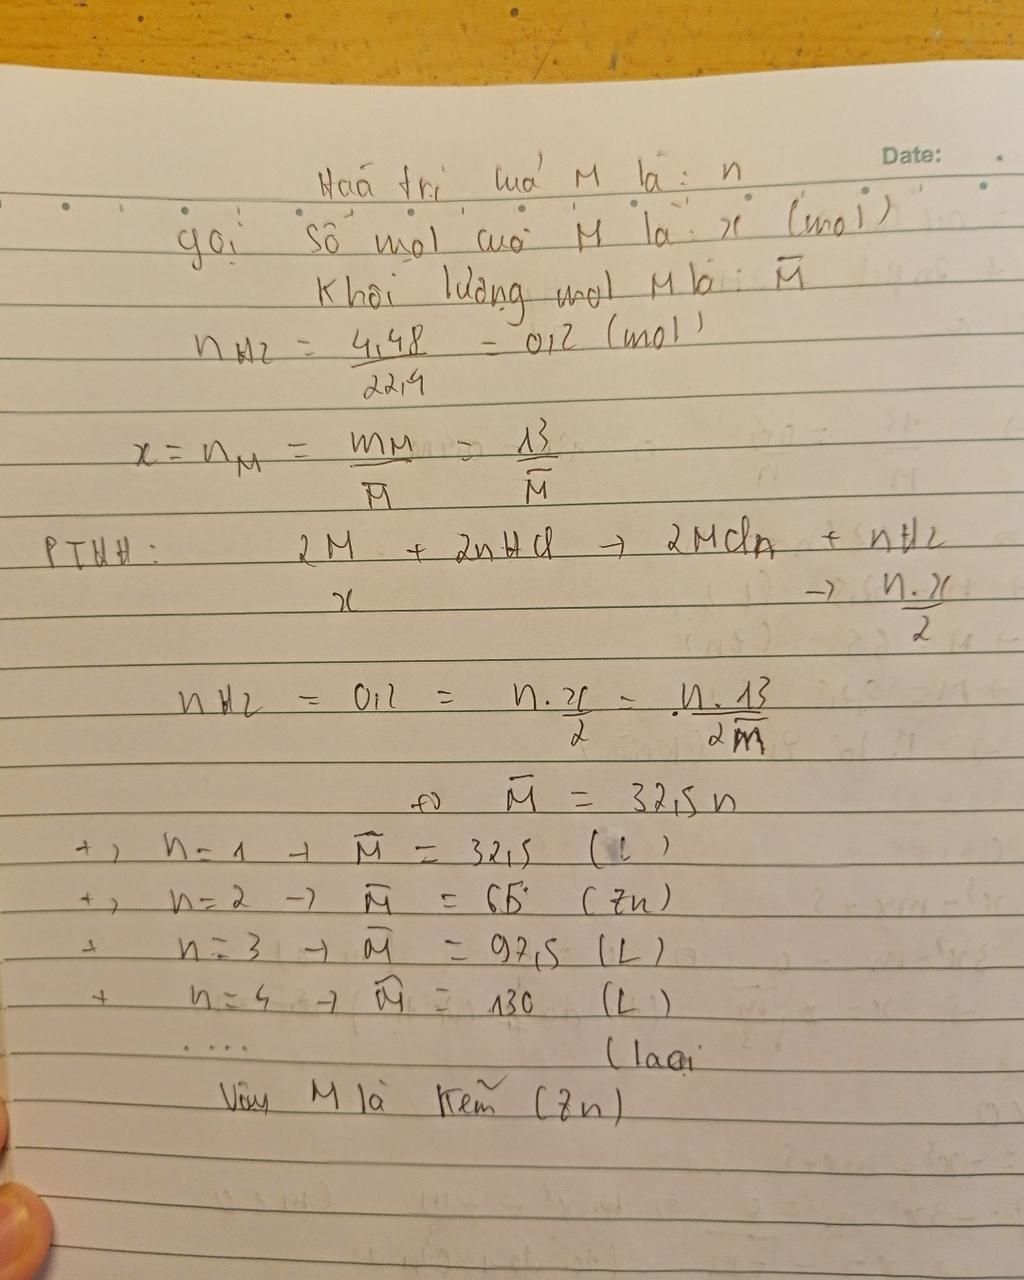 Date:
Hoá trị của M là: n
gọi số mol của M là: x (mol)
Khối lượng mol M là: M̅
nH2 = 4,48/22,4 = 0,2 (mol)
x = nM = mM/M̅ = 13/M̅
PTHH: 2M + 2nHCl → 2MCln + nH2
x → n.x/2
nH2 = 0,2 = n.x/2 = n.13/2M̅
⇔ M̅ = 32,5n
+, n=1 → M̅ = 32,5 (L)
+, n=2 → M̅ = 65 (Zn)
+ n=3 → M̅ = 97,5 (L)
+ n=4 → M̅ = 130 (L)
.... (loại
Vậy M là Kẽm (Zn)